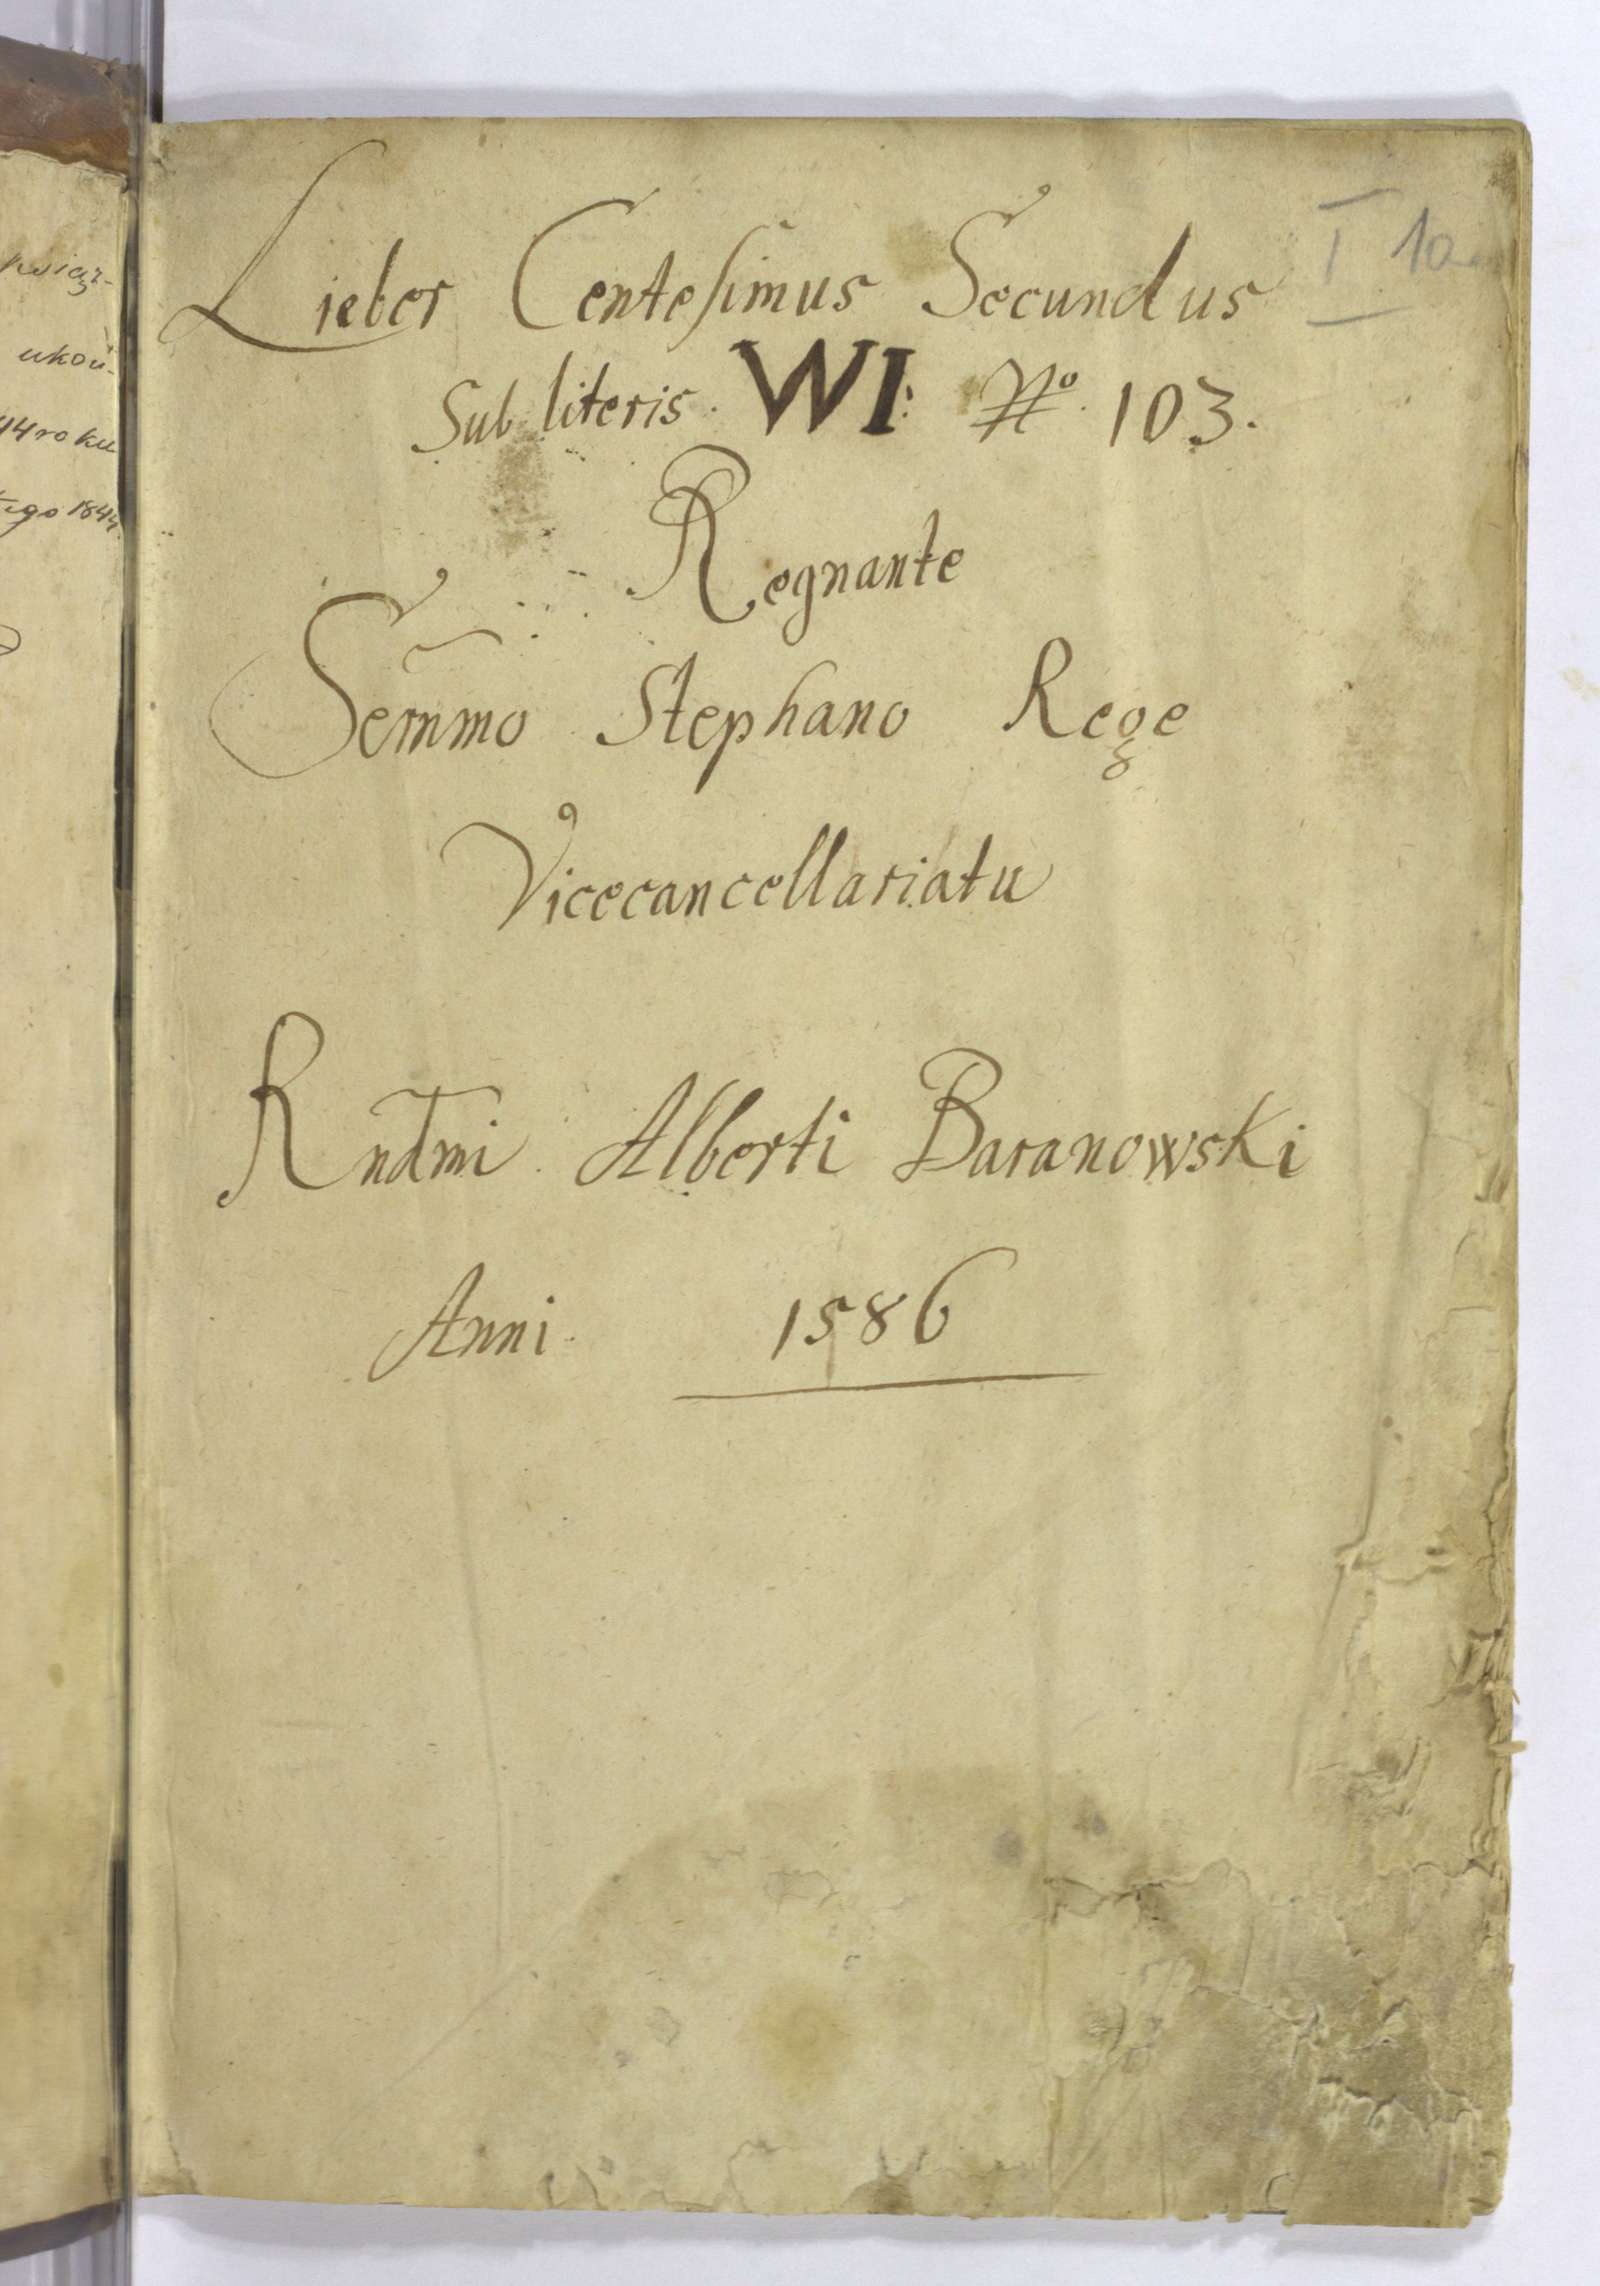 ukoń-
44 roku
tego 1844
I 10
Lieber Centesimus Secundus
Sub literis. WI: No. 103.
Regnante
Sernmo Stephano Rege
Vicecancellariatu
Rndmi Alberti Baranowski
Anni 1586